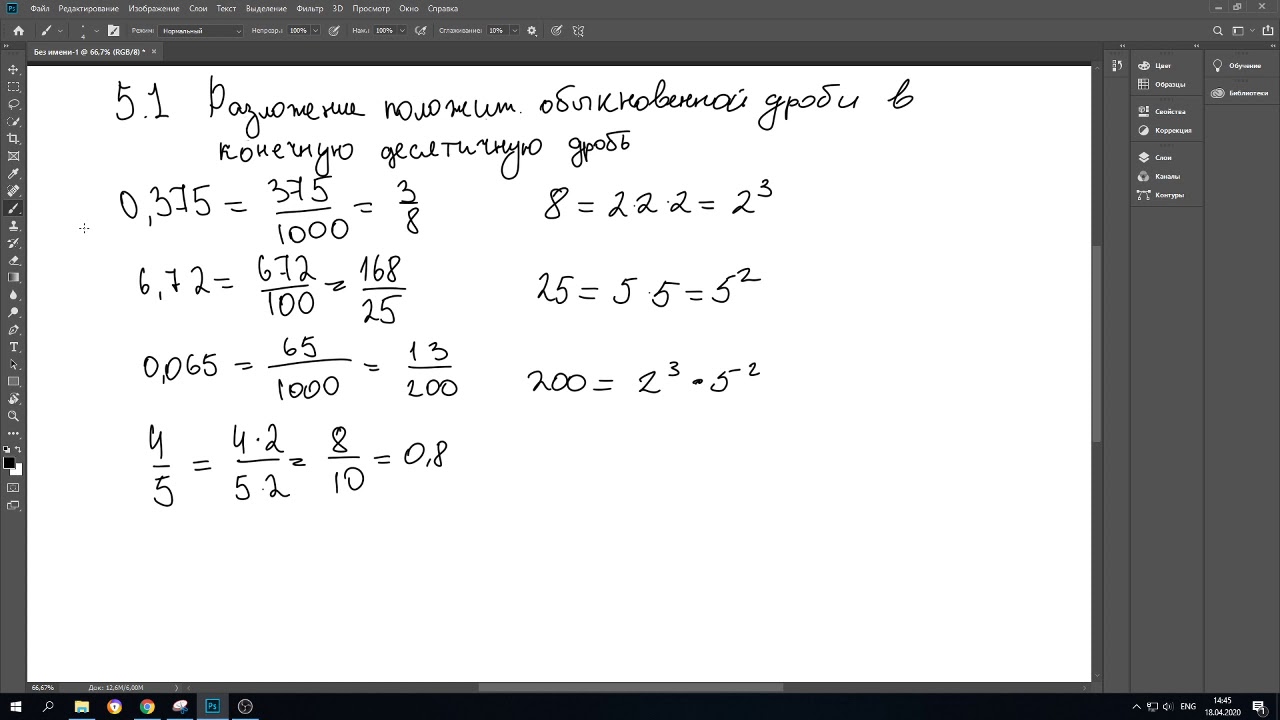 Файл Редактирование Изображение Слои Текст Выделение Фильтр 3D Просмотр Окно Справка
Режим: Нормальный Непрозр.: 100% Наж.: 100% Сглаживание: 10%
Без имени-1 @ 66,7% (RGB/8) *
Цвет
Образцы
Свойства
Коррекция
Слои
Каналы
Контуры
Обучение
Библиотеки
5.1 Разложение положит. обыкновенной дроби в
конечную десятичную дробь
0,375 = 375/1000 = 3/8 8 = 2·2·2 = 2³
6,72 = 672/100 = 168/25 25 = 5·5 = 5²
0,065 = 65/1000 = 13/200 200 = 2³ · 5⁻²
4/5 = 4·2/5·2 = 8/10 = 0,8
66,67% Док: 12,6M/6,00M
ENG 14:45
18.04.2020